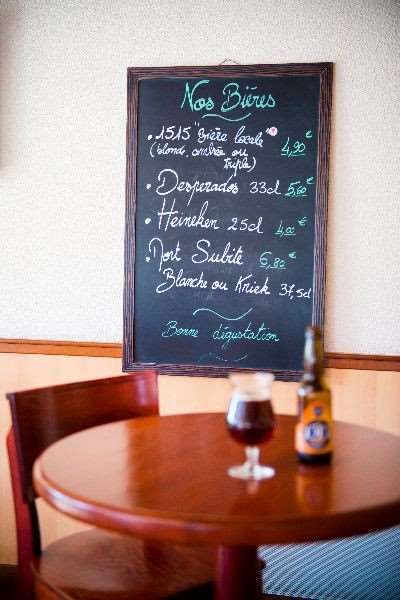 Nos Bières
• 1515 "Bière locale" 4,90€
(blonde, ambrée ou
triple)
• Desperados 33cl 5,60€
• Heineken 25cl 4,00€
• Mort Subite 6,80€
Blanche ou Kriek 37,5cl
Bonne dégustation